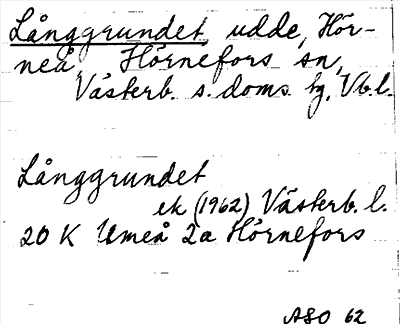 Långgrundet, udde, Hör-
neå, Hörnefors sn,
Västerb. s. doms. tg, Vb.l.
Långgrundet
ek (1962) Västerb. l.
20 K Umeå 2a Hörnefors
ASO 62